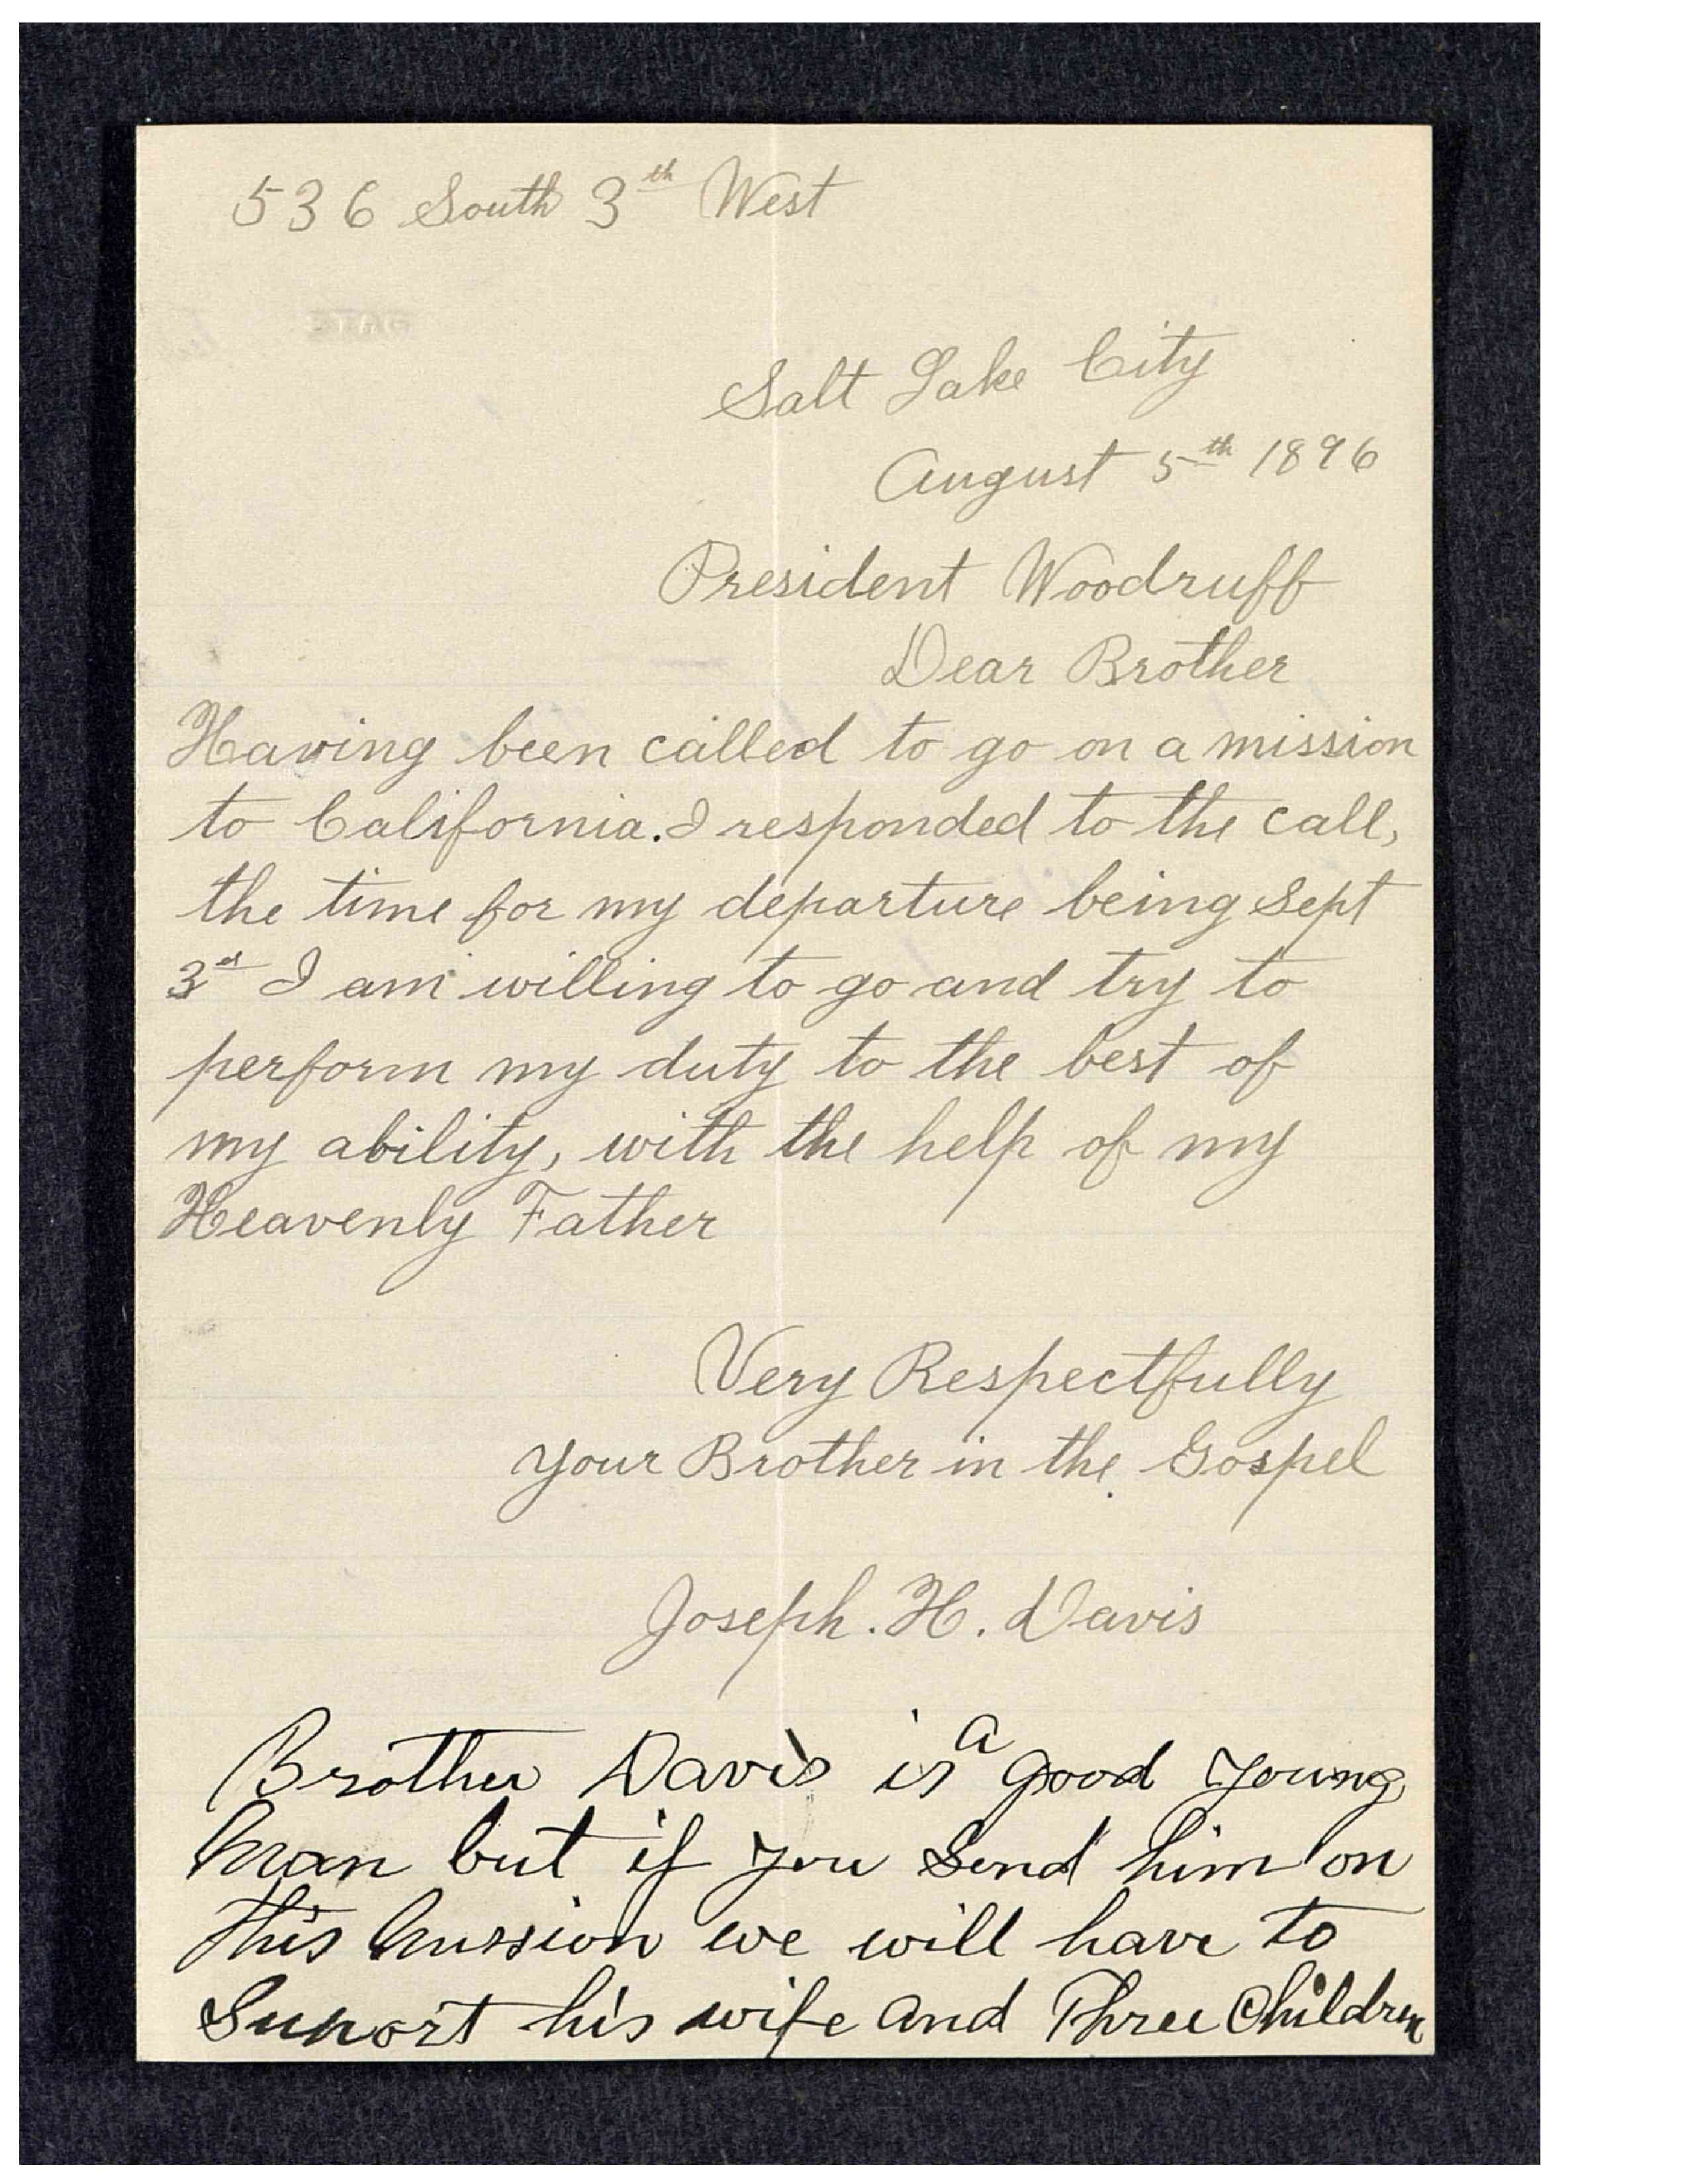 536 South 3th West
Salt Lake City
August 5th 1896
President Woodruff
Dear Brother
Having been called to go on a mission
to California. I responded to the call,
the time for my departure being Sept
3d I am willing to go and try to
perform my duty to the best of
my ability, with the help of my
Heavenly Father
Very Respectfully
your Brother in the Gospel
Joseph. H. Davis
Brother Davis is a good young
man but if you send him on
this mission we will have to
Suport his wife and Three Children